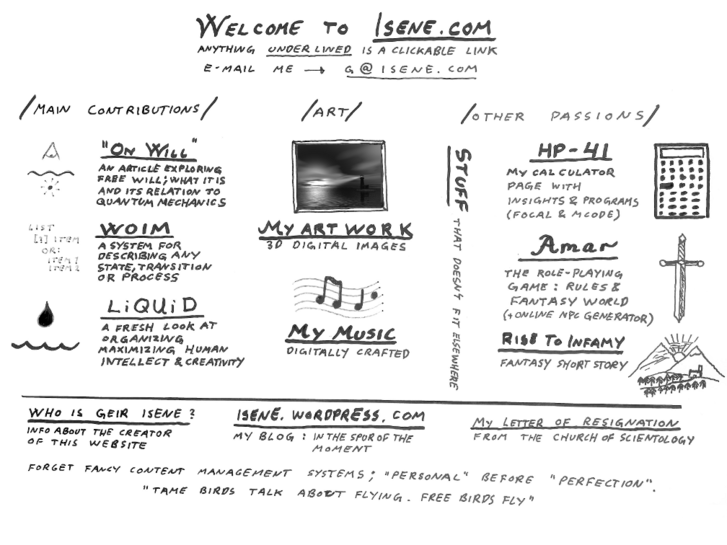 WELCOME TO ISENE.COM
ANYTHING UNDERLINED IS A CLICKABLE LINK
E-MAIL ME → G@ISENE.COM
/MAIN CONTRIBUTIONS/
"ON WILL"
AN ARTICLE EXPLORING
FREE WILL; WHAT IT IS
AND ITS RELATION TO
QUANTUM MECHANICS
LIST
[1] ITEM
OR:
ITEM 1
ITEM 2
WOIM
A SYSTEM FOR
DESCRIBING ANY
STATE, TRANSITION
OR PROCESS
LiQUiD
A FRESH LOOK AT
ORGANIZING
MAXIMIZING HUMAN
INTELLECT & CREATIVITY
/ART/
MY ART WORK
3D DIGITAL IMAGES
MY MUSIC
DIGITALLY CRAFTED
STUFF THAT DOESN'T FIT ELSEWHERE
/OTHER PASSIONS/
HP-41
MY CALCULATOR
PAGE WITH
INSIGHTS & PROGRAMS
(FOCAL & MCODE)
Amar
THE ROLE-PLAYING
GAME: RULES &
FANTASY WORLD
(+ONLINE NPC GENERATOR)
RISE TO INFAMY
FANTASY SHORT STORY
WHO IS GEIR ISENE?
INFO ABOUT THE CREATOR
OF THIS WEBSITE
ISENE.WORDPRESS.COM
MY BLOG: IN THE SPUR OF THE
MOMENT
MY LETTER OF RESIGNATION
FROM THE CHURCH OF SCIENTOLOGY
FORGET FANCY CONTENT MANAGEMENT SYSTEMS; "PERSONAL" BEFORE "PERFECTION".
"TAME BIRDS TALK ABOUT FLYING. FREE BIRDS FLY"